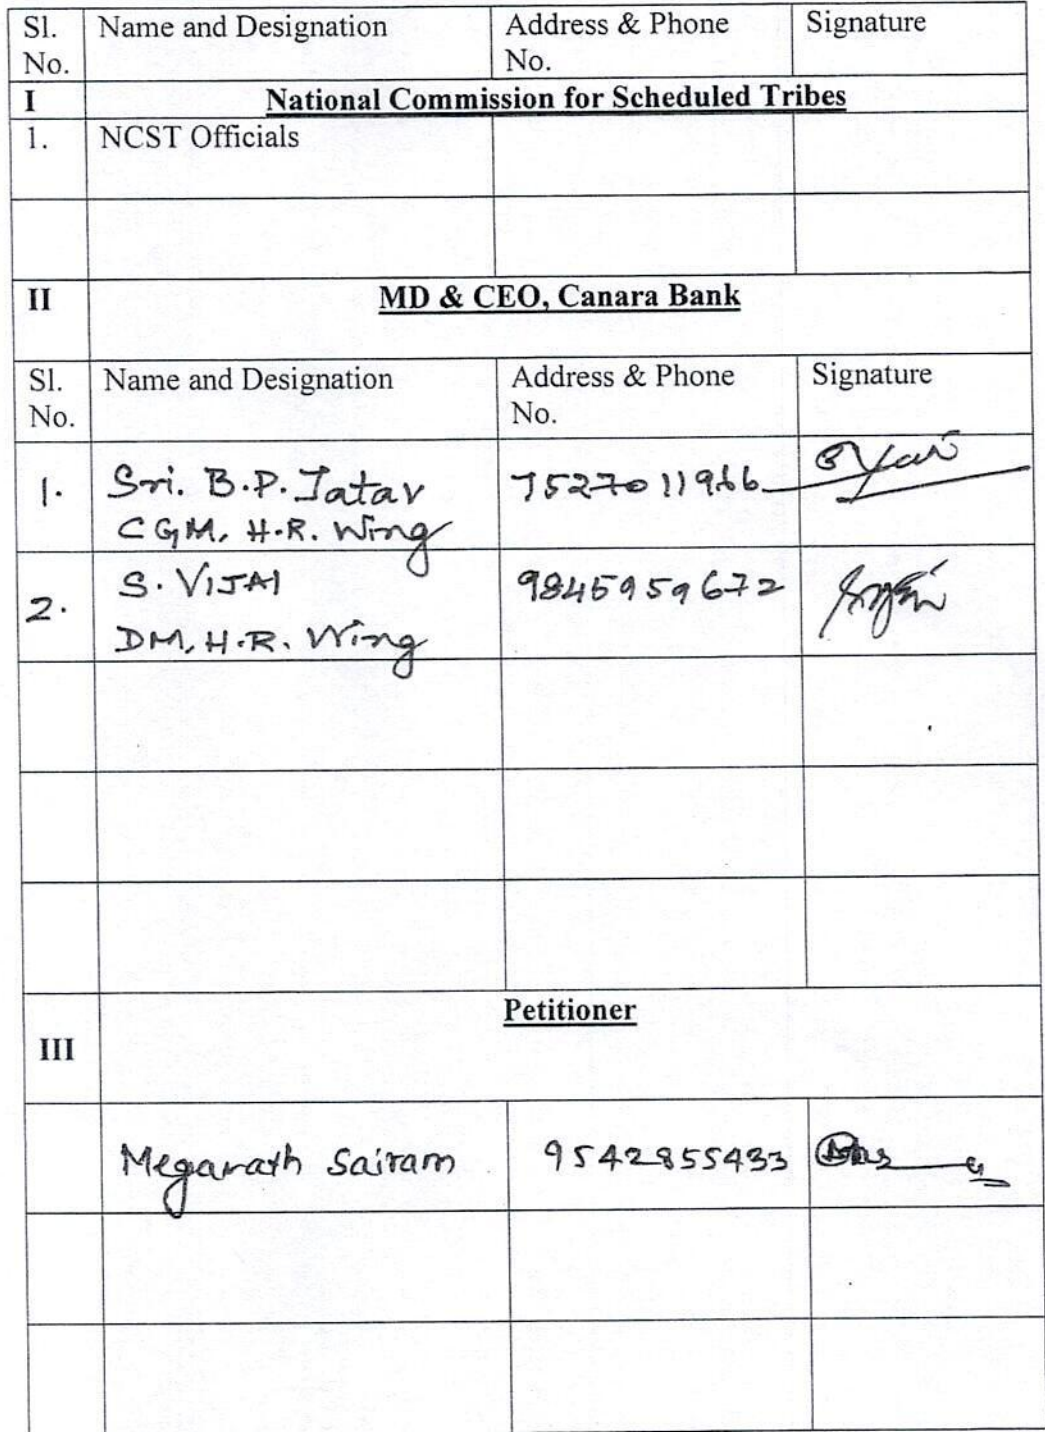 Sl. No. Name and Designation Address & Phone No. Signature
I National Commission for Scheduled Tribes
1. NCST Officials
II MD & CEO, Canara Bank
Sl. No. Name and Designation Address & Phone No. Signature
1. Sri. B.P. Jatav 7527011966
CGM, H.R. Wing
2. S. VIJAI 9845959672
DM, H.R. Wing
III Petitioner
Meganath Sairam 9542855433